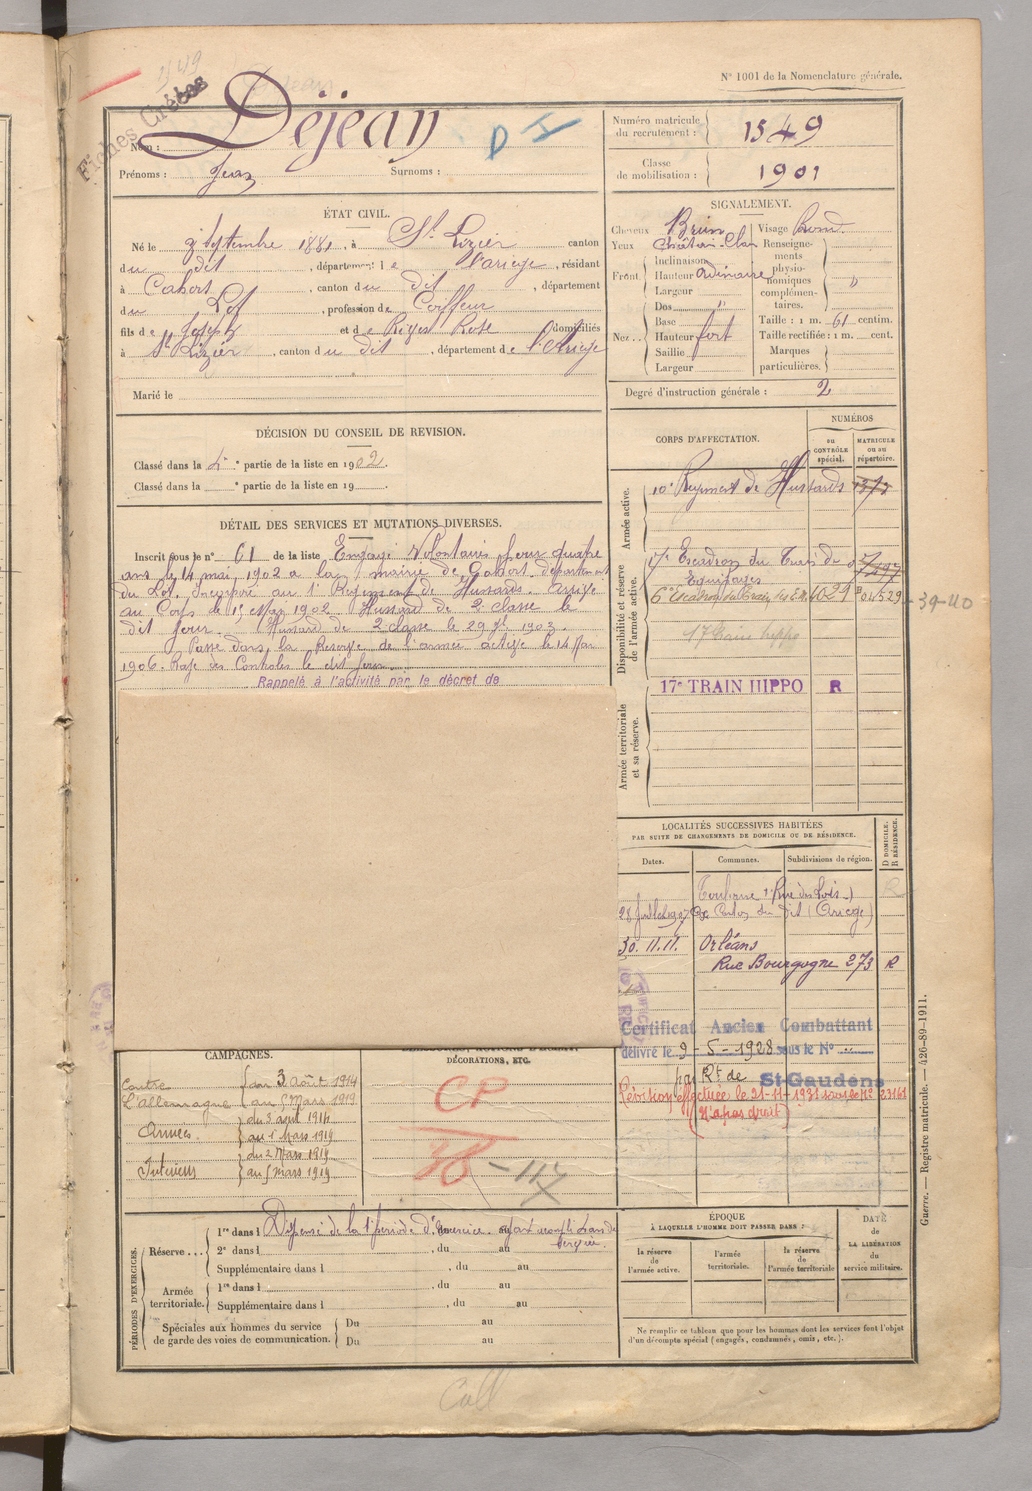 N° 1001 de la Nomenclature générale.
1549
Fiches Créées
Déjean
Nom :
Prénoms : Jean Surnoms :
Numéro matricule du recrutement : 1549
Classe de mobilisation : 1901
ÉTAT CIVIL.
Né le 9 septembre 1881, à St Lizier canton
du dit, département de l'ariège, résidant
à Cahors, canton du dit, département
du Lot, profession de Coiffeur
fils de Joseph et de Rose domiciliés
à St Lizier, canton du dit, département de l'Ariège
Marié le
SIGNALEMENT.
Cheveux Brun
Yeux Clair
Front. Inclinaison
Hauteur Ordinaire
Largeur
Nez.. Dos "
Base
Hauteur fort
Saillie
Largeur
Visage Rond.
Renseignements physionomiques complémentaires. "
Taille : 1 m. 61 centim.
Taille rectifiée : 1 m. cent.
Marques particulières.
Degré d'instruction générale : 2
DÉCISION DU CONSEIL DE REVISION.
Classé dans la partie de la liste en 1902.
Classé dans la ° partie de la liste en 19
DÉTAIL DES SERVICES ET MUTATIONS DIVERSES.
Inscrit sous le n° 61 de la liste Engagé Volontaire pour quatre
ans le 14 mai 1902 a la mairie de Cahors. département
du Lot. Incorporé au Régiment de Hussards. Arrivé
au Corps le 15 Mai 1902 Hussard de 2e classe le
dit jour. Hussard de 2e classe le 29 1903.
Passé dans la Réserve de l'armée active le 14 Mai
1906. Rayé des Contrôles le dit jour.
Rappelé à l'activité par le décret de
CORPS D'AFFECTATION.
NUMÉROS
AU CONTRÔLE spécial.
MATRICULE OU AU répertoire.
Armée active.
10e Régiment de Hussards
Disponibilité et réserve de l'armée active.
17e Escadron du Train des
Equipages
6e Escadron du Train des E.M. 4029 04529
39-40
17 Train hippo
Armée territoriale et sa réserve.
17e TRAIN HIPPO R
LOCALITÉS SUCCESSIVES HABITÉES
PAR SUITE DE CHANGEMENTS DE DOMICILE OU DE RÉSIDENCE.
Dates. Communes. Subdivisions de région. D DOMICILE. R RÉSIDENCE.
Toulouse Rue des Lois R
28 Juillet 1907 Canton du dit (Ariège)
30.11.11. Orléans
Rue Bourgogne 273 R
Certificat Ancien Combattant
délivré le 9-5-1928 sous le N°
par Rt de St-Gaudens
Révision effectuée le 21-11-1931 sous le N° 23161
(N'a pas droit)
CAMPAGNES.
Contre l'allemagne du 3 Août 1914
au 5 Mars 1919
Armées. du 3 août 1914
au 1 Mars 1919
Intérieur du 2 Mars 1919
au 5 mars 1919
DÉCORATIONS, ETC.
CP
38 - 117
PÉRIODES D'EXERCICES.
Réserve... 1re dans l Dispensé de la 1e période d'exercice.
2e dans l , du au
Supplémentaire dans l , du au
Armée territoriale. 1re dans l , du au
Supplémentaire dans l , du au
Spéciales aux hommes du service de garde des voies de communication. Du au
Du au
ÉPOQUE
À LAQUELLE L'HOMME DOIT PASSER DANS :
la réserve de l'armée active.
l'armée territoriale.
la réserve de l'armée territoriale
DATE de LA LIBÉRATION du service militaire.
Ne remplir ce tableau que pour les hommes dont les services font l'objet
d'un décompte spécial (engagés, condamnés, omis, etc.).
Guerre. — Registre matricule. — 426-89-1911.